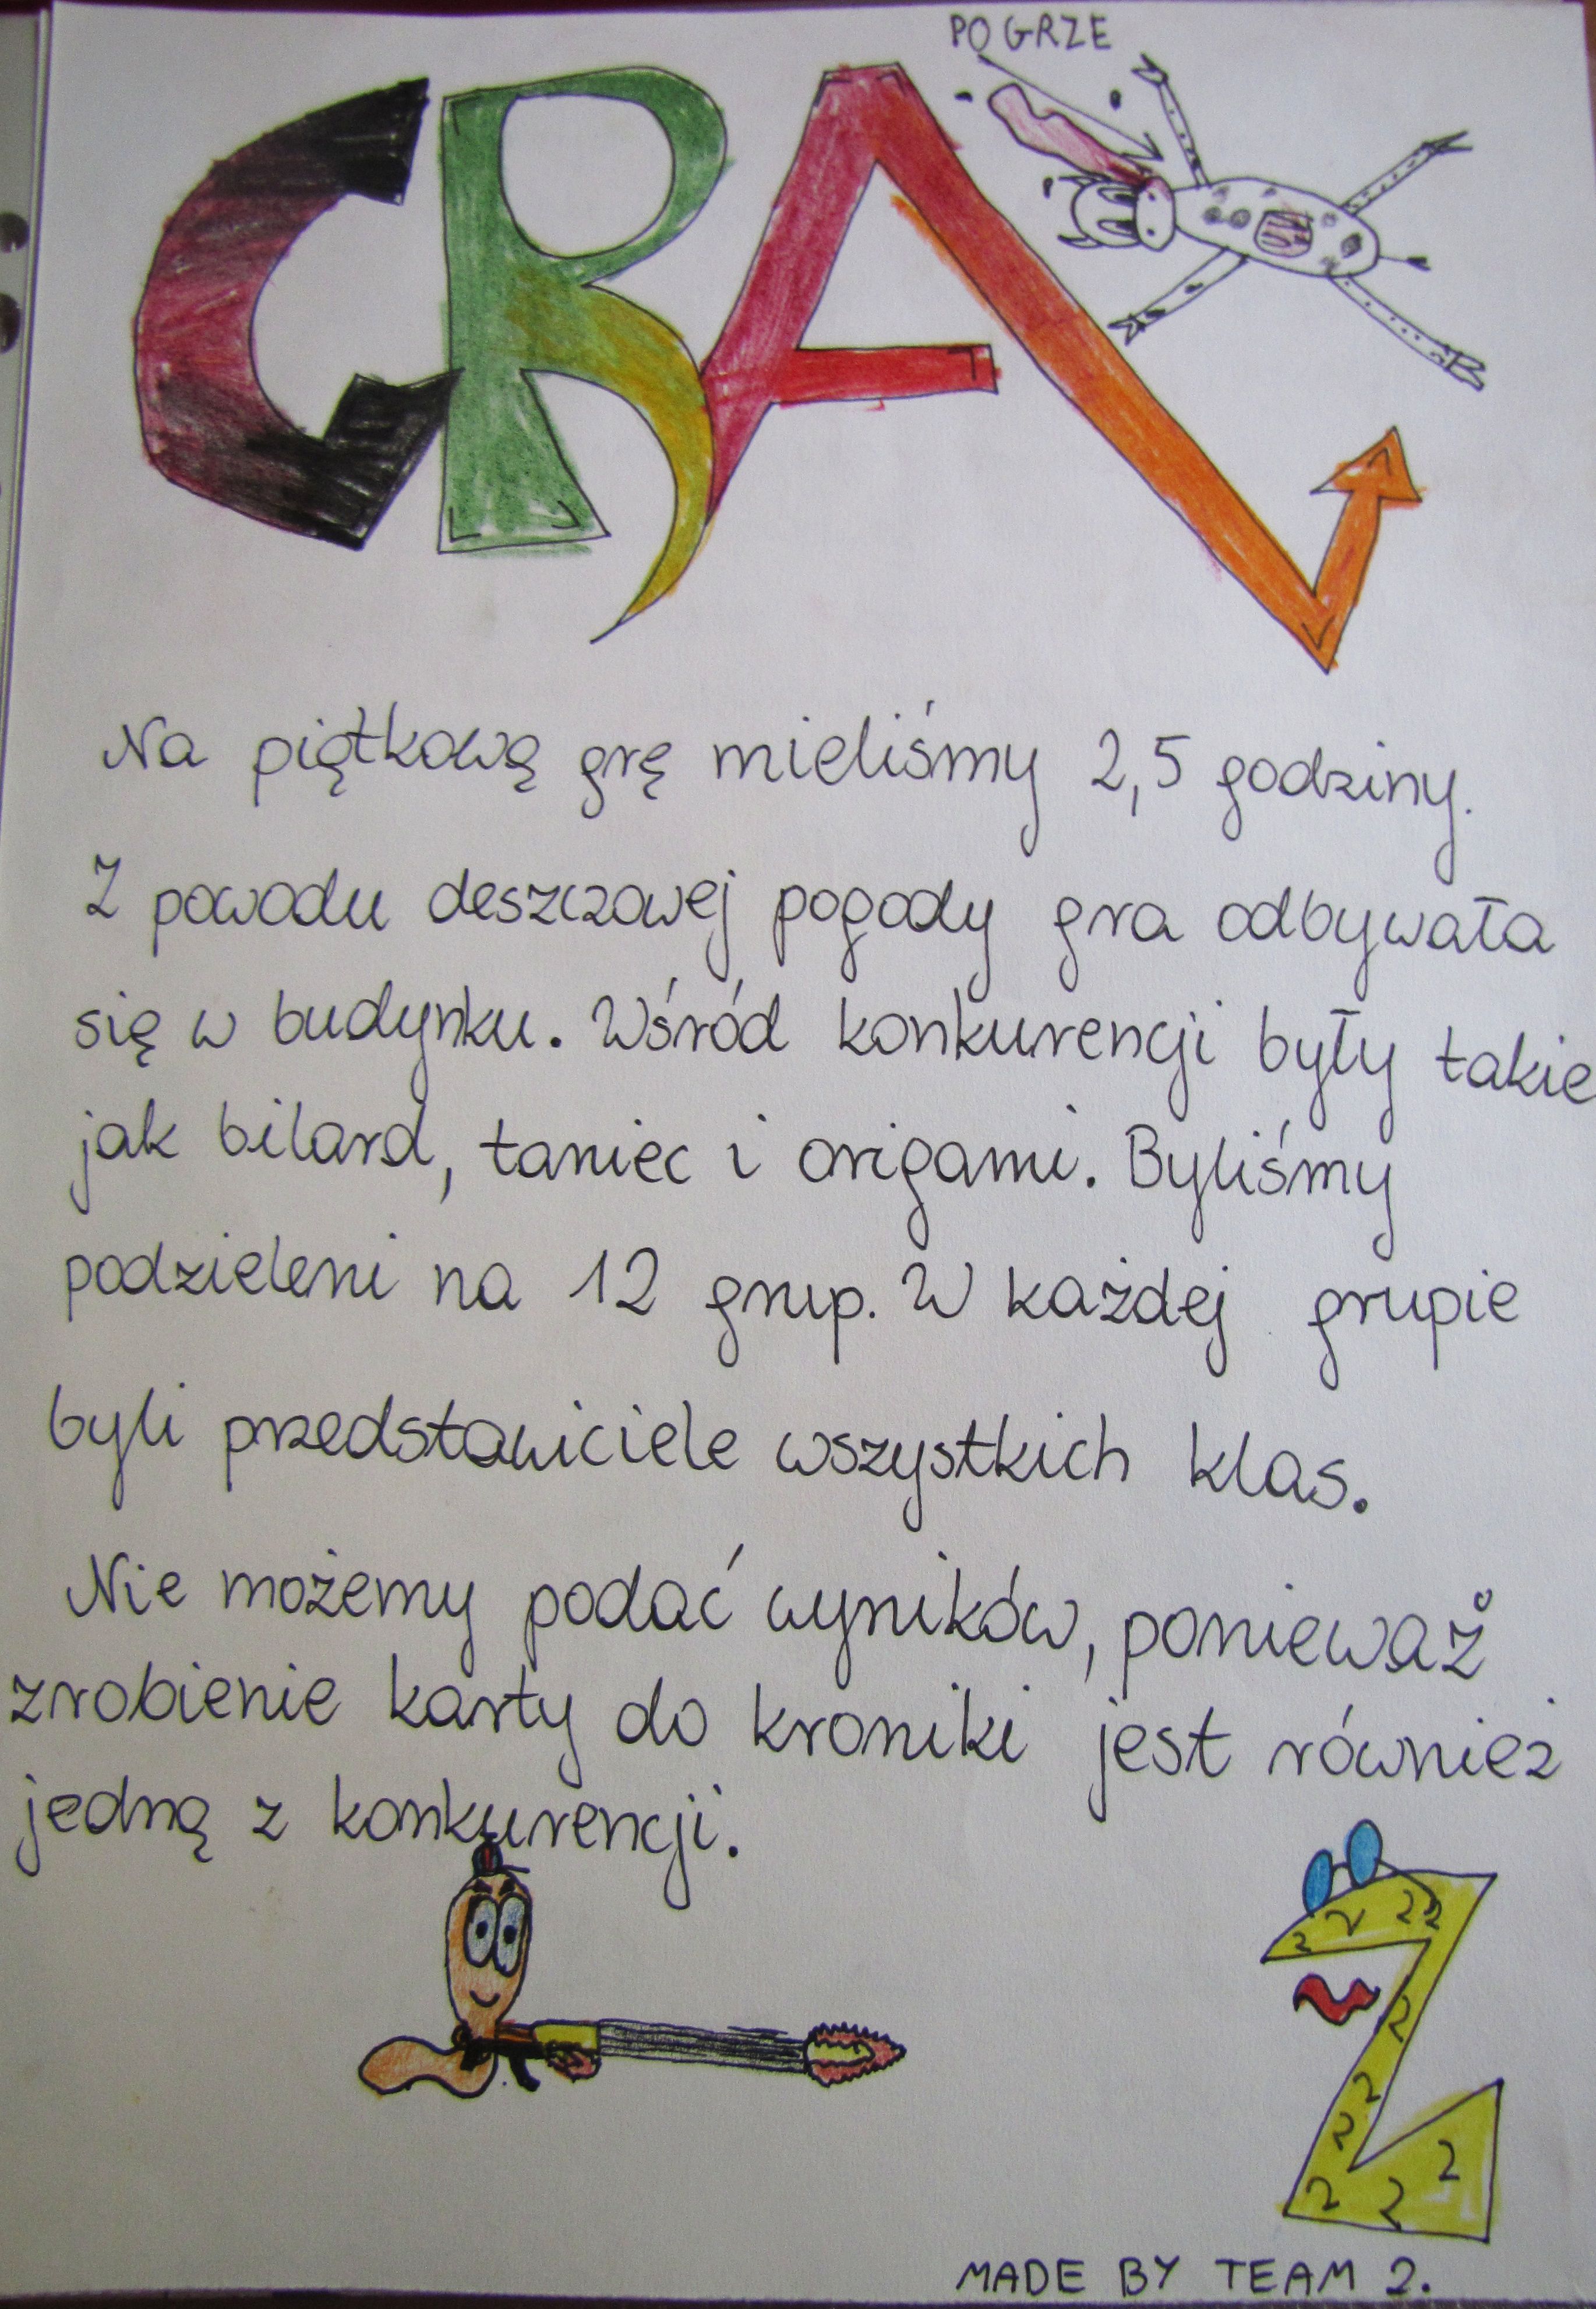 PO GRZE
GRA
Na piątkową grę mieliśmy 2,5 godziny.
Z powodu deszczowej pogody gra odbywała
się w budynku. Wśród konkurencji były takie
jak bilard, taniec i origami. Byliśmy
podzieleni na 12 grup. W każdej grupie
byli przedstawiciele wszystkich klas.
Nie możemy podać wyników, ponieważ
zrobienie karty do kroniki jest również
jedną z konkurencji.
2 2 2 2
2
2
2
2
2 2
MADE BY TEAM 2.